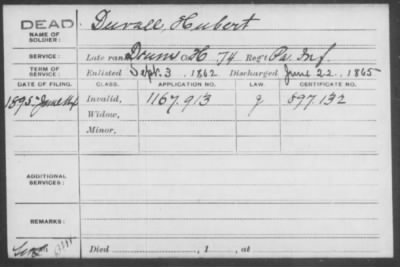 DEAD
NAME OF SOLDIER: Duvall, Hubert
SERVICE: Late rank Drum Co. H, 74 Reg't Pa. Inf.
TERM OF SERVICE: Enlisted Sept. 3, 1862 Discharged June 22, 1865
DATE OF FILING. CLASS. APPLICATION NO. LAW CERTIFICATE NO.
1895 June Invalid, 1167.913 g 897.132
Widow,
Minor,
ADDITIONAL SERVICES:
REMARKS:
Died , 1 , at